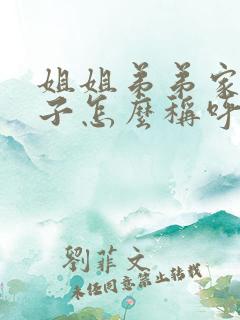 姐姐弟弟家
子怎麼稱呼
劉菲文
未经同意禁止转载